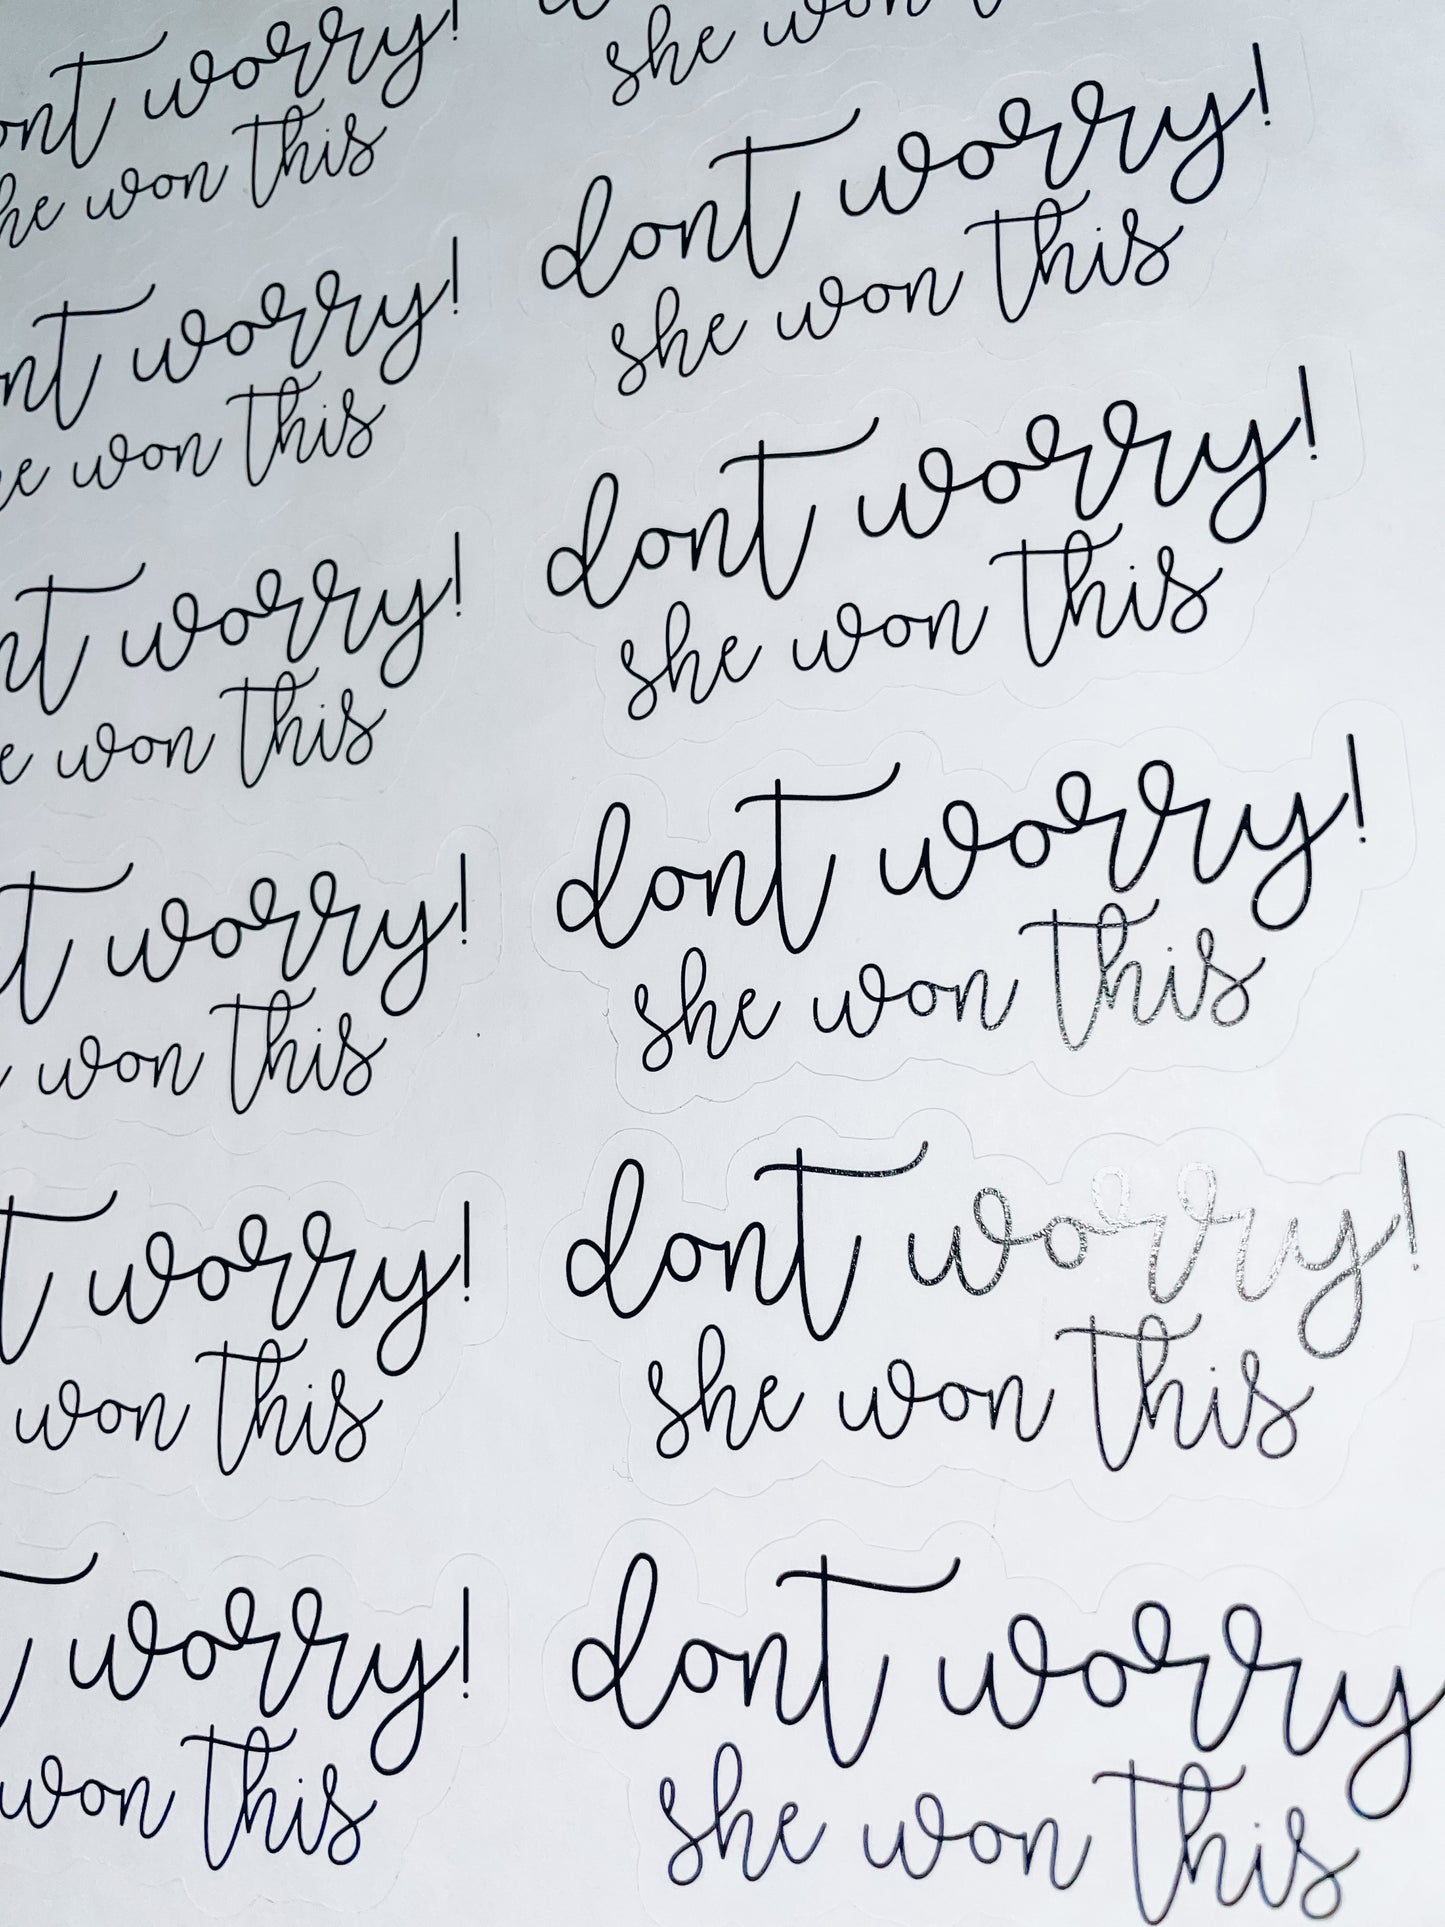 ont worry!
he won this
nt worry!
e won this
nt worry!
e won this
t worry!
won this
t worry!
won this
t worry!
won this
she won t
dont worry!
she won this
dont worry!
she won this
dont worry!
she won this
dont worry!
she won this
dont worry
she won this